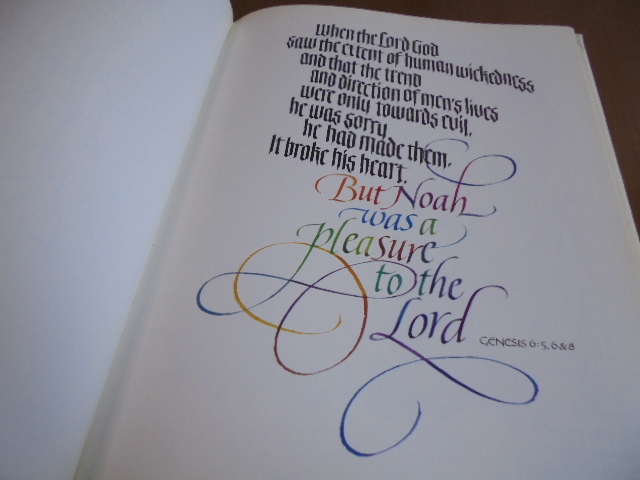 When the Lord God
saw the extent of human wickedness
and that the trend
and direction of men's lives
were only towards evil,
he was sorry
he had made them.
It broke his heart.
But Noah
was a
pleasure
to the
Lord
GENESIS 6:5, 6 & 8